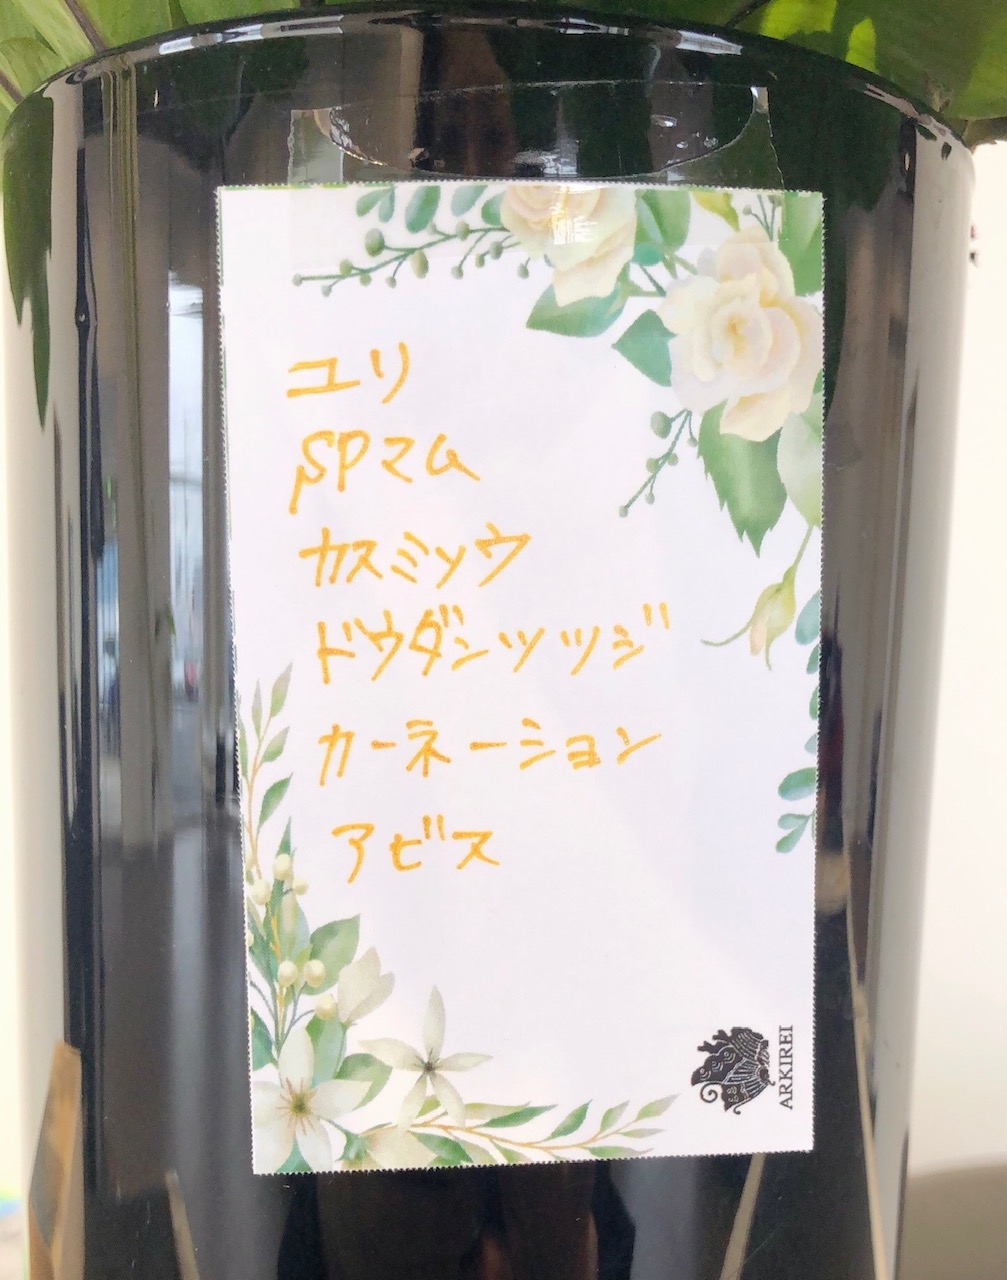 ユリ
SPマム
カスミソウ
ドウダンツツジ
カーネーション
アビス
ARKIREI